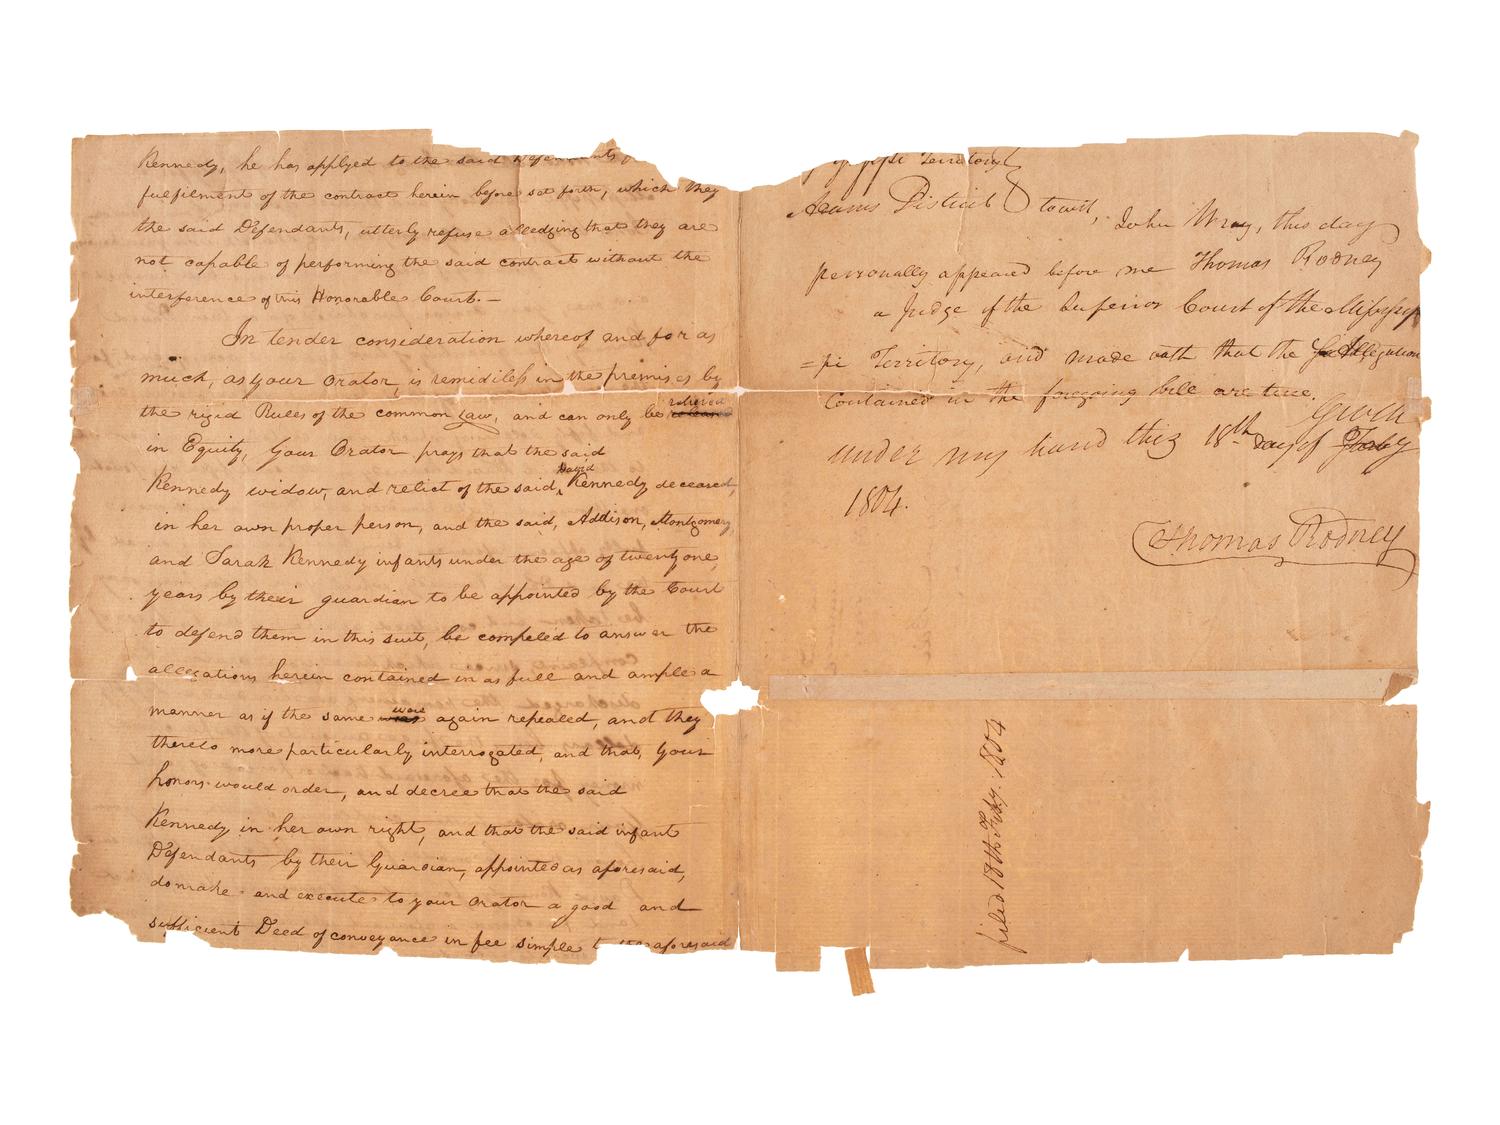 Kennedy, he has applyed to the said Defendants
fulfilment of the contract herein before set forth, which they
the said Defendants, utterly refuse alledging that they are
not capable of performing the said contract without the
interference of this Honorable Court. —
In tender consideration whereof and for as
much, as your Orator, is remidiless in the premises by
the rigid Rules of the common Law, and can only be relieved
in Equity, your Orator prays that the said
Kennedy widow, and relict of the said, David Kennedy deceased,
in her own proper person, and the said, Addison, Montgomery,
and Sarah Kennedy infants under the age of twenty one,
years by their guardian to be appointed by the Court
to defend them in this suit, be compeled to answer the
allegations herein contained in as full and ample a
manner as if the same were again repeated, and they
thereto more particularly interrogated, and that, your
honors would order, and decree that the said
Kennedy in her own right, and that the said infant
Defendants by their Guardian, appointed as aforesaid,
do make and execute to your Orator a good and
sufficient Deed of conveyance in fee simple the aforesaid
Territory
Adams District towit,
John Wray, this day
personally appeared before me Thomas Rodney
a Judge of the Superior Court of the Mississip
=pi Territory, and made oath that the Allegations
Contained in the foregoing bill are true.
Given
under my hand this 18th day of Feby
1804.
Thomas Rodney
filed 18th Feby. 1804